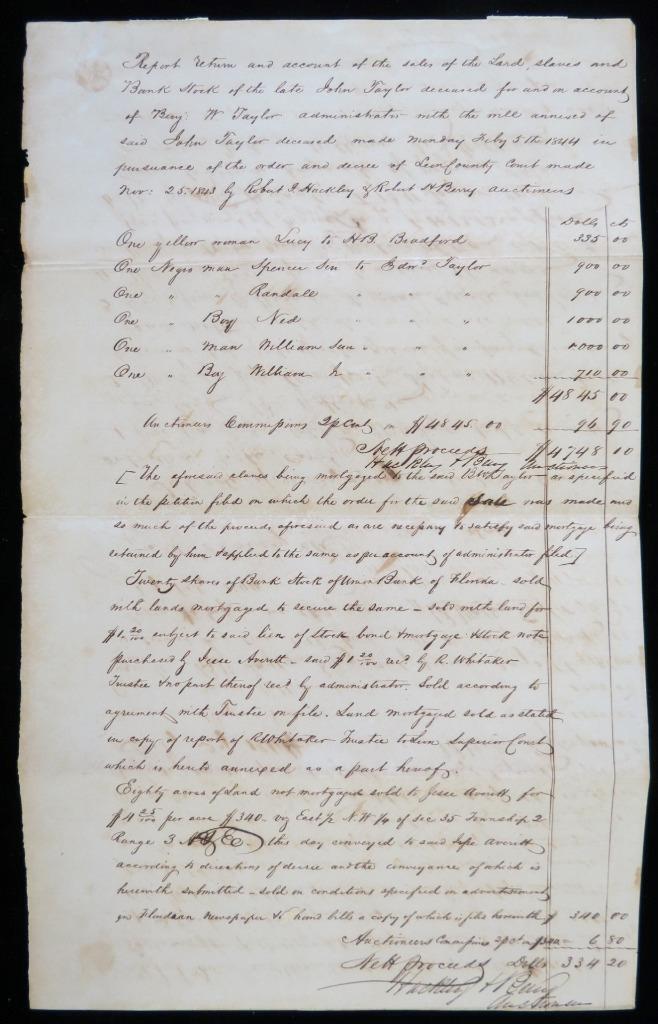 Report return and account of the sales of the Land, slaves and
Bank Stock of the late John Taylor deceased for and on account
of Benj: W Taylor administrator with the will annexed of
said John Taylor deceased made Monday Feby 5th 1844 in
pursuance of the order and decree of Leon County Court made
Nov: 25. 1843 by Robert J Hackley & Robert H Berry auctineers
Dolls cts
One yellow woman Lucy to H.B. Bradford 335 00
One Negro man Spencer Sen to Edwd Taylor 900 00
One " " Randall " " " 900 00
One " Boy Ned " " " 1000 00
One " man William Sen " " " 1000 00
One " Boy William Jr " " " 710 00
$4845 00
Auctineers Commissions 2 pr Cent on $4845.00 96 90
Nett proceeds $4748 10
Hackley & Berry Auctineers
[The aforesaid slaves being mortgaged to the said B W Taylor as specified
in the petition filed on which the order for the said Sale was made and
so much of the proceeds aforesaid as are necessary to satisfy said mortgage being
retained by him & applied to the same as per account of administrator filed]
Twenty shares of Bank Stock of Union Bank of Florida sold
with lands mortgaged to secure the same - sold with land for
$1 20/100 subject to said lien of Stock bond & mortgage & stock note
purchased by Jesse Averitt - said $1 20/100 recd by R. Whitaker
Trustee & no part thereof recd by administrator. Sold according to
agreement with Trustee on file. Land mortgaged sold as stated
in copy of report of R Whitaker Trustee to Leon Superior Court
which is hereto annexed as a part hereof.
Eighty acres of Land not mortgaged sold to Jesse Averitt for
$4 25/100 per acre $340. viz East 1/2 N.W 1/4 of sec 35 Township 2
Range 3 this day conveyed to said Jesse Averitt
according to directions of decree and the conveyance of which is
herewith submitted - sold on conditions specified in advertisement
in Floridian Newspaper & hand bills a copy of which is filed herewith $ 340 00
Auctioneers Commissions 2 pr ct on $340 - 6 80
Nett proceeds Dolls 334 20
Hackley & Berry
Auctineers